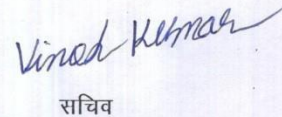 Vinod Kumar
सचिव